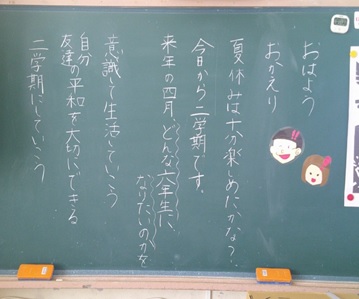 おはよう
おかえり
夏休みは十分楽しめたかな？
今日から二学期です。
来年の四月、どんな六年生に
なりたいのかを
意識して生活していこう
自分
友達の平和を大切にできる
二学期にしていこう